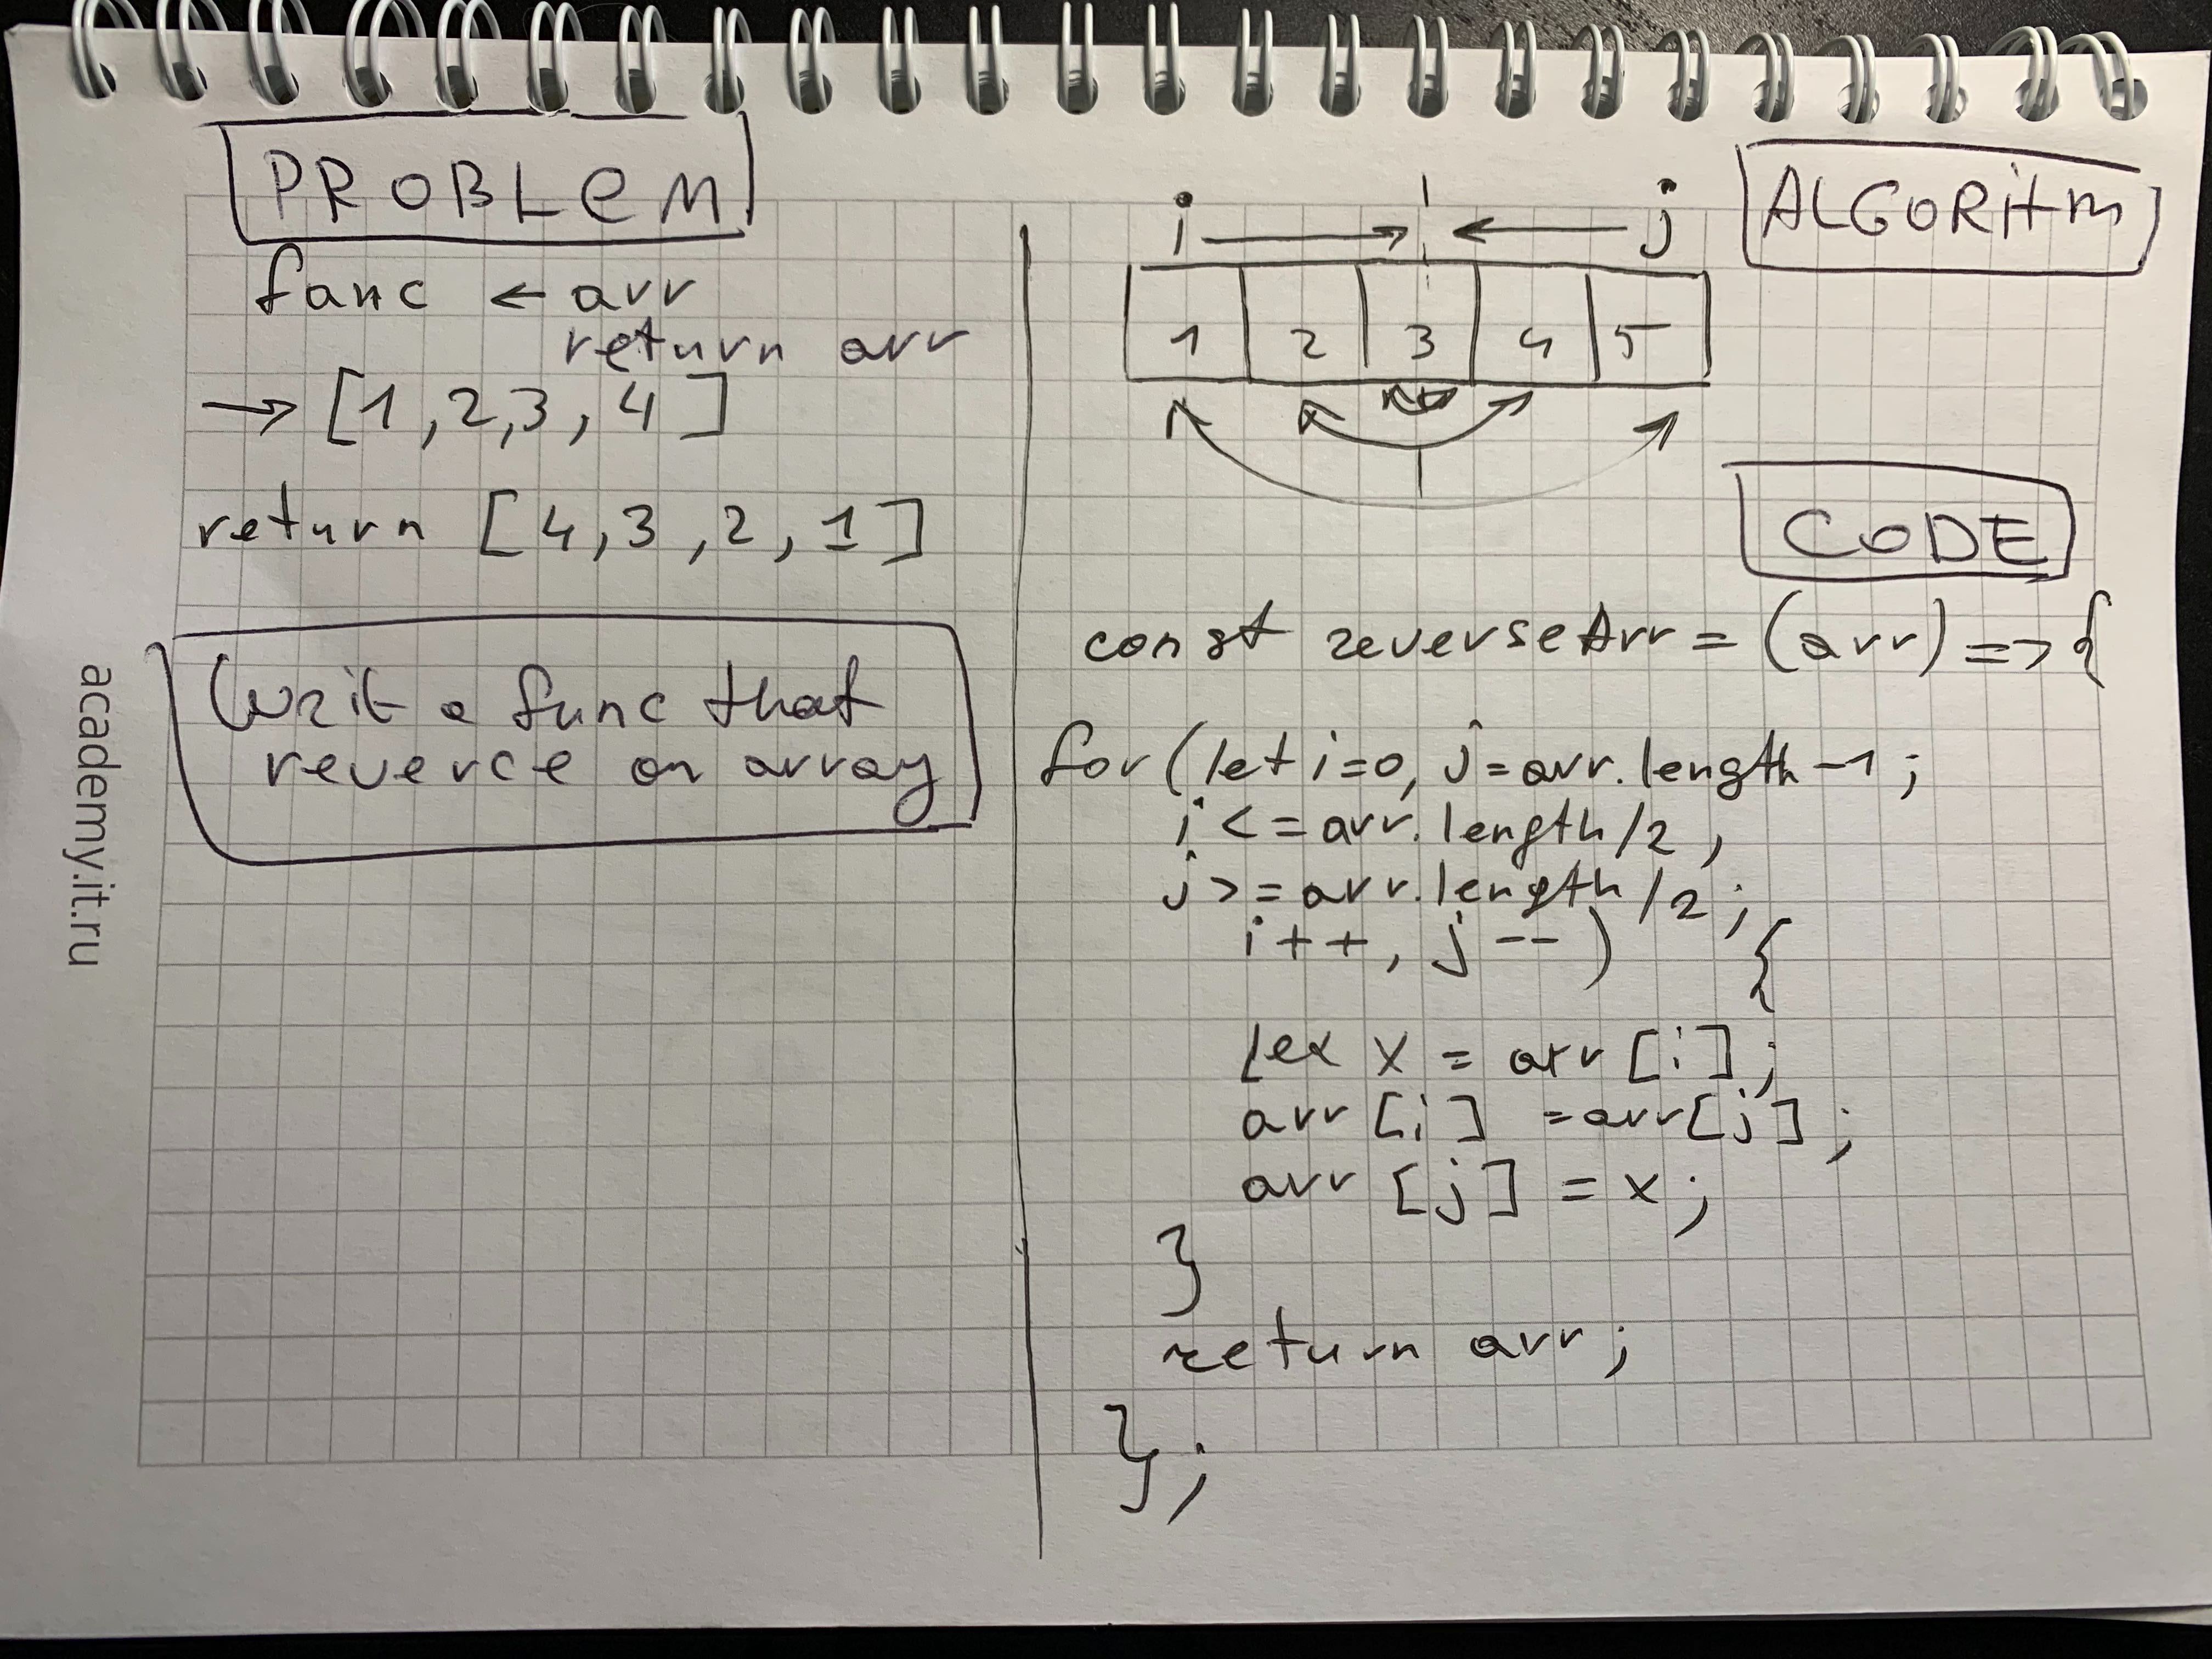 PROBLEM
func ← arr
return arr
→ [1,2,3,4]
return [4,3,2,1]
Write a func that
reverce an array
academy.it.ru
ALGORitm
i → ← j
1 2 3 4 5
CODE
const reverseArr = (arr) => {
for (let i=0, j=arr.length-1;
i <= arr.length/2,
j >= arr.length/2;
i++, j--) {
let x = arr[i];
arr[i] = arr[j];
arr[j] = x;
}
return arr;
};